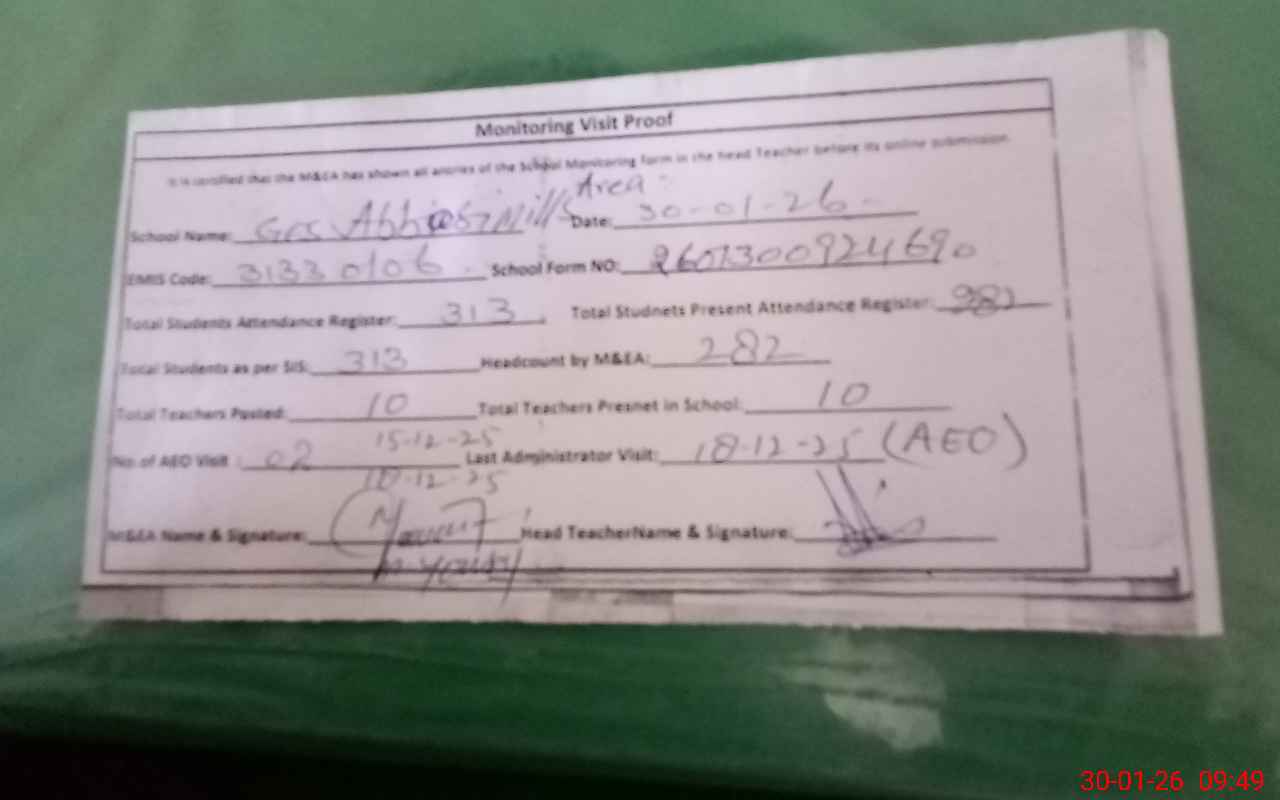 Monitoring Visit Proof
It is certified that the M&EA has shown all entries of the School Monitoring form to the head Teacher before its online submission
Area
School Name: GES Mills Date: 30-01-26
EMIS Code: 31330106 School Form NO: 2601300924690
Total Students Attendance Register: 313 Total Studnets Present Attendance Register:
Total Students as per SIS: 313 Headcount by M&EA: 282
Total Teachers Posted: 10 Total Teachers Presnet in School: 10
15-12-25
No. of AEO Visit : 02 Last Administrator Visit: 18-12-25 (AEO)
18-12-25
M&EA Name & Signature: Head TeacherName & Signature:
30-01-26 09:49